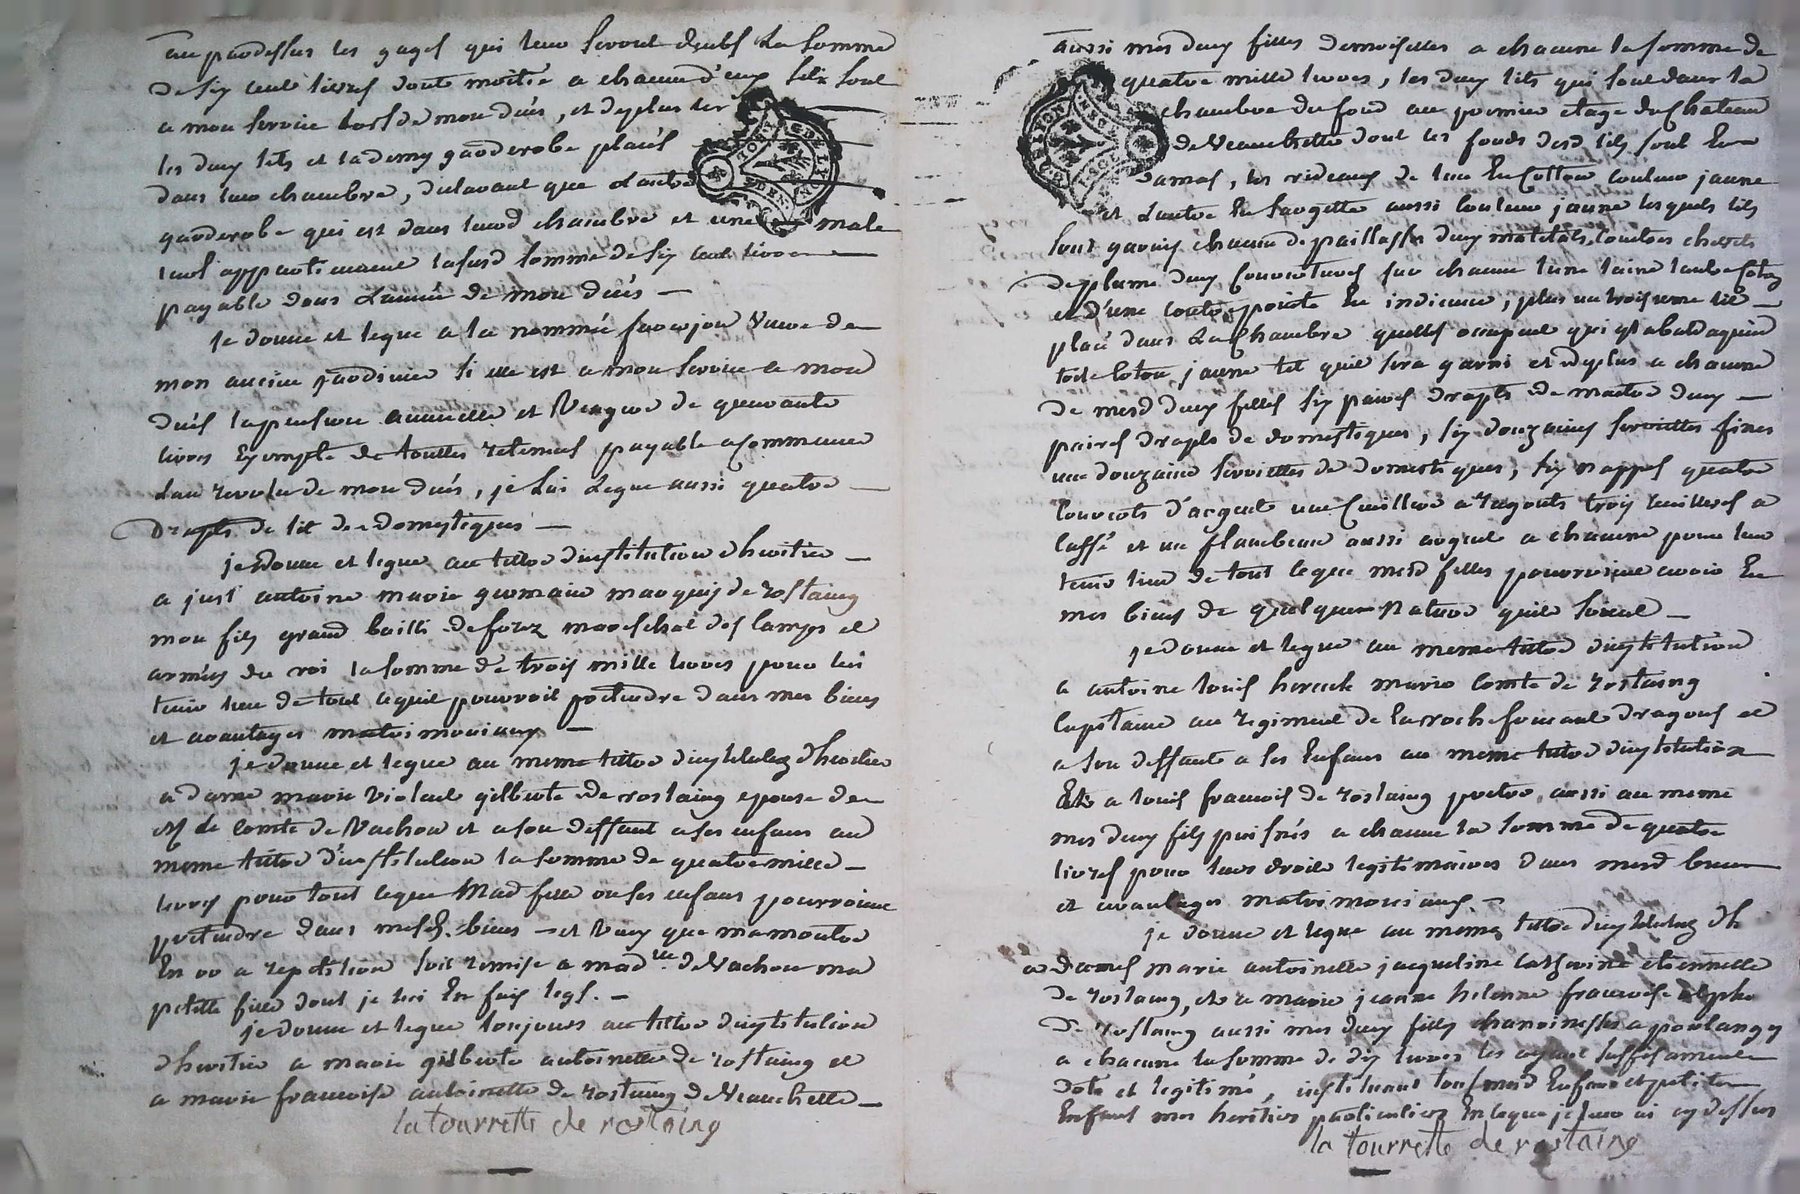 au pardessus les gages qui leur seront deubs La somme
de six cent livres dont moitié a chacun d'eux sils sont
a mon service lors de mon dués, et deplus les
les deux lits et lademy garderobe placés
dans leur chambre, delavant que Lautre
garderobe qui est dans leurd chambre et une male
leurs appartiennent lasusd somme de six cent livres
payable dans L'année de mon dués
Je donne et legue a la nommée veuve de
mon ancien jardinier si elle est a mon service a mon
dués lapension annuelle et viagere de quarante
livres Exempte de touttes retenues payable acommencer
Lan revolu de mon dués, je Lui Legue aussi quatre
Draps de lit de domestiques
je donne et legue au titre dinstitution dheritier
a just antoine marie germain marquis de rostaing
mon fils grand bailli de forez mareschal des camps et
armées du roi la somme de trois mille livres pour lui
tenir lieu de tout cequil pourroit pretendre dans mes biens
et avantages matrimoniaux
je donne et legue au meme tittre dinstitution dheritier
a dame marie violent gilberte de rostaing epouse de
Mr le comte de Vachon et a son deffaut a ses enfans au
meme tittre d'institution la somme de quatre mille
livres pour tout ceque Mad fille ou ses enfans pourroient
pretendre dans mesd. biens et veux que ma montre
En or a repetition soit remise a madlle de Vachon ma
petitte fille dont je lui En fais legs.
je donne et legue toujours au titre dinstitution
dheritier a marie gilberte antoinette de rostaing et
a marie francoise antoinette de rostaing de Veauchette
la tourrette de rostaing
aussi mes deux filles demoiselles a chacune la somme de
quatre mille livres, les deux lits qui sont dans la
chambre du fond au premier etage du Chateau
de Veauchette dont les fonds desd lits sont En
damas, les rideaux de lun En Cotton couleur jaune
et Lautre En sargette aussi couleur jaune lesquels lits
sont garnis chacun de paillasse deux matelats, traversin
de plume deux Couvertures sur chacun lune laine lautre Coton
et d'une coutrepointe En indienne, plus un troisieme lit
placé dans La Chambre quelles occupent qui est abaldaquin
toile coton jaune tel quil sera garni et deplus a chacune
de mesd deux filles six paires draps de maitre deux
paires draps de domestiques, six douzaines serviettes fines
une douzaine serviettes de domestiques, six nappes quatre
couverts d'argent une Cuilliere a ragouts trois cuilleres a
caffé et un flambeau aussi argent a chacune pour leur
tenir lieu de tout ceque mesd filles pourroient avoir En
mes biens de quelque Nature quils soient
je donne et legue au meme tittre dinstitution
a antoine louis hercule marie comte de rostaing
capitaine au regiment de Larochefoucaut dragons et
a son deffaut a ses Enfans au meme tittre dinstitution
Et a louis francois de rostaing pretre aussi au meme
mes deux fils puisnés a chacun la somme de quatre
livres pour leurs droits legitimaires dans mesd biens
et avantages matrimoniaux.
je donne et legue au meme tittre dinstitution dh
a dames marie antoinette jacqueline catherine etiennette
de rostaing, et a marie jeanne helenne francoise
de rostaing aussi mes deux filles chanoinesses a poulangy
a chacune la somme de dix livres les ayant suffisament
doté et legitimé, instituant tous mesd Enfans et petits
Enfans mes heritiers particuliers En ceque je leur ai cy dessus
la tourrette de rostaing